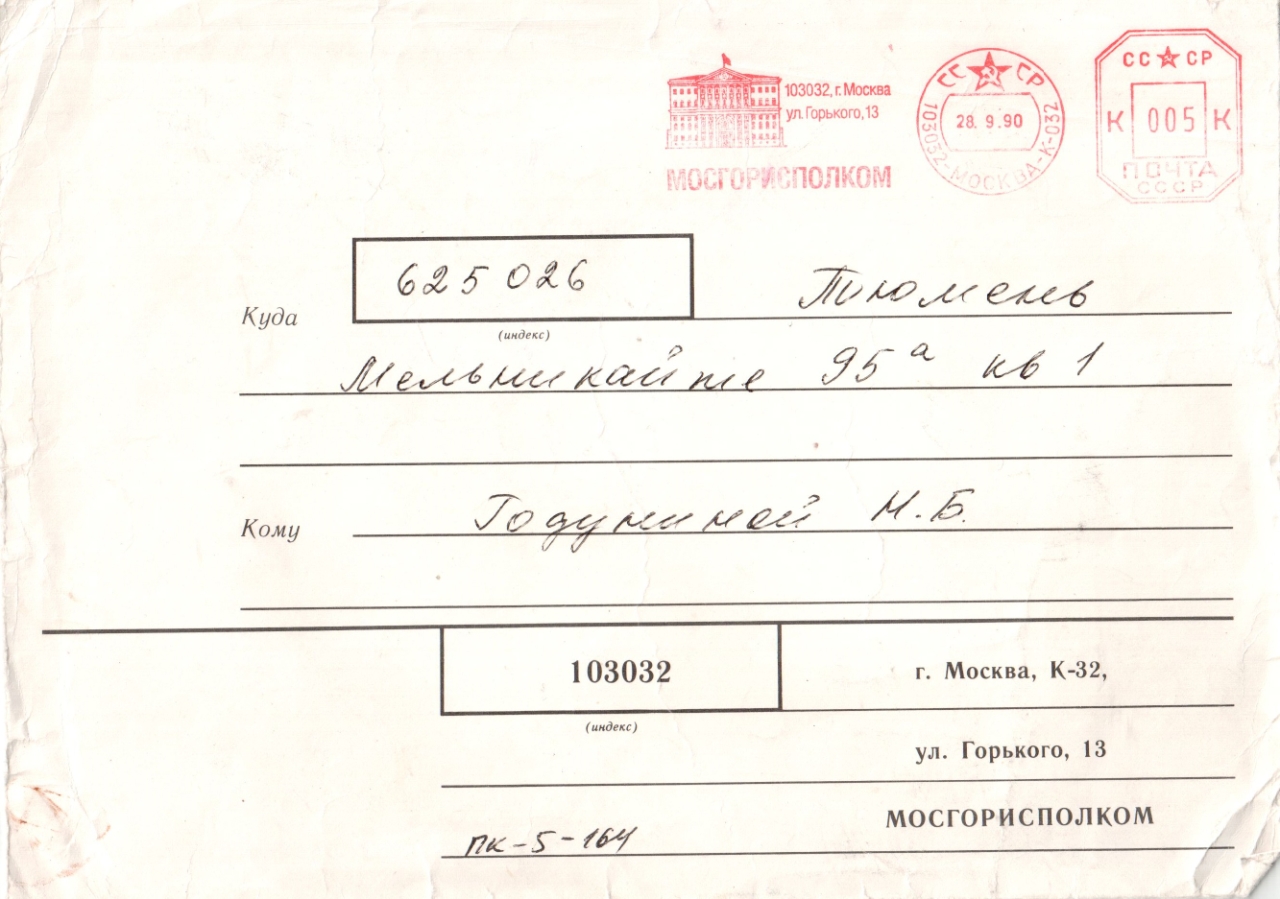 103032, г. Москва
ул. Горького, 13
МОСГОРИСПОЛКОМ
СССР
28. 9.90
103032-МОСКВА-К-032
СССР
К 005 К
ПОЧТА
СССР
625026 Тюмень
Куда
(индекс)
Мельникайте 95а кв 1
Кому Годуниной Н.Б.
103032 г. Москва, К-32,
(индекс)
ул. Горького, 13
МОСГОРИСПОЛКОМ
пк-5-164